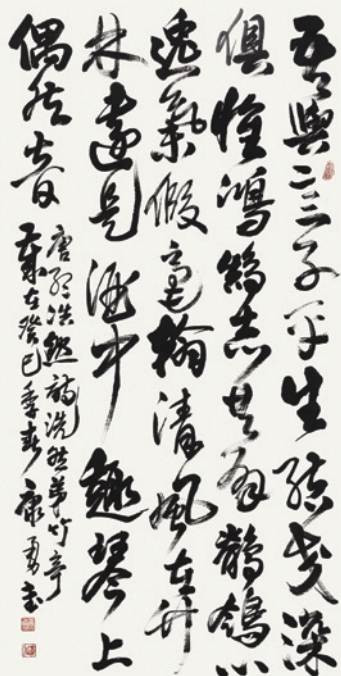 吾與二三子平生結交深
俱懷鴻鵠志共有鶺鴒心
逸氣假毫翰清風在竹
林達是酒中趣琴上
偶然音
唐孟浩然詩洗然弟竹亭
歲在癸巳季春康勇書